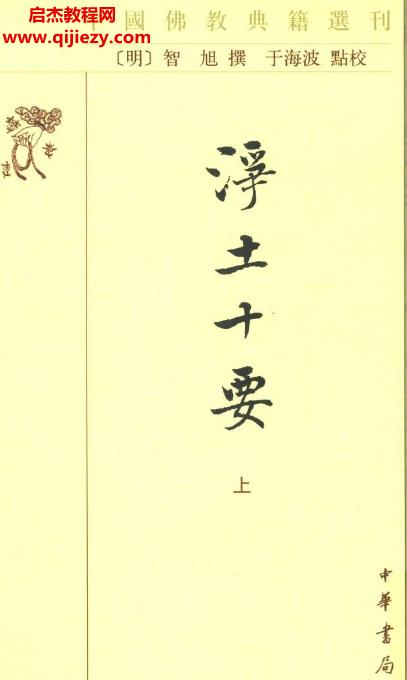 启杰教程网
www.qijiezy.com
中國佛教典籍選刊
〔明〕智旭撰 于海波 點校
淨土十要
上
中華書局